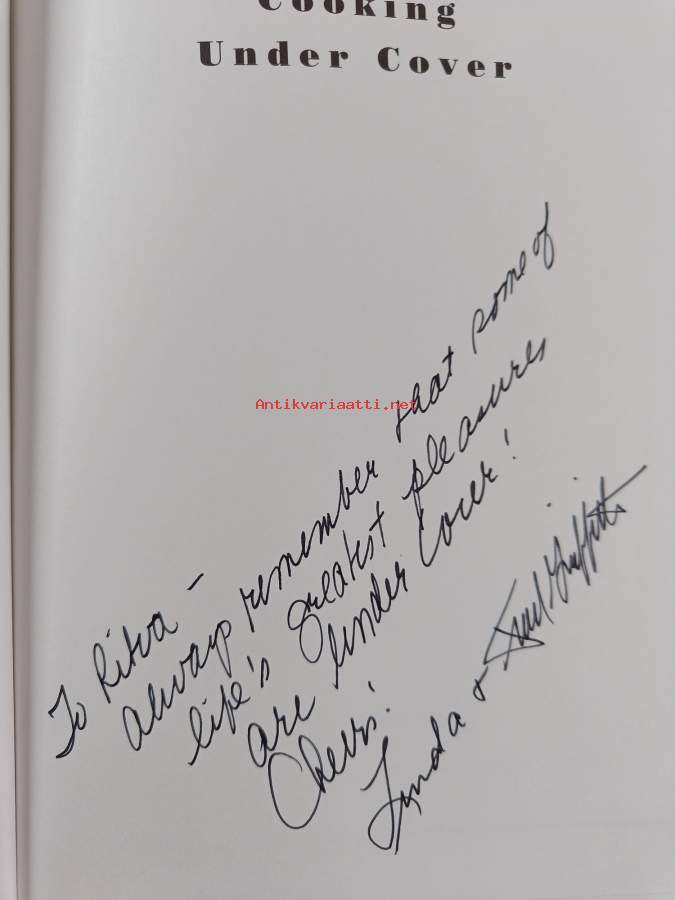 Cooking
Under Cover
Antikvariaatti.net
To Ritva –
always remember that some of
life's greatest pleasures
are Under Cover!
Cheers!
Linda & Fred Griffith